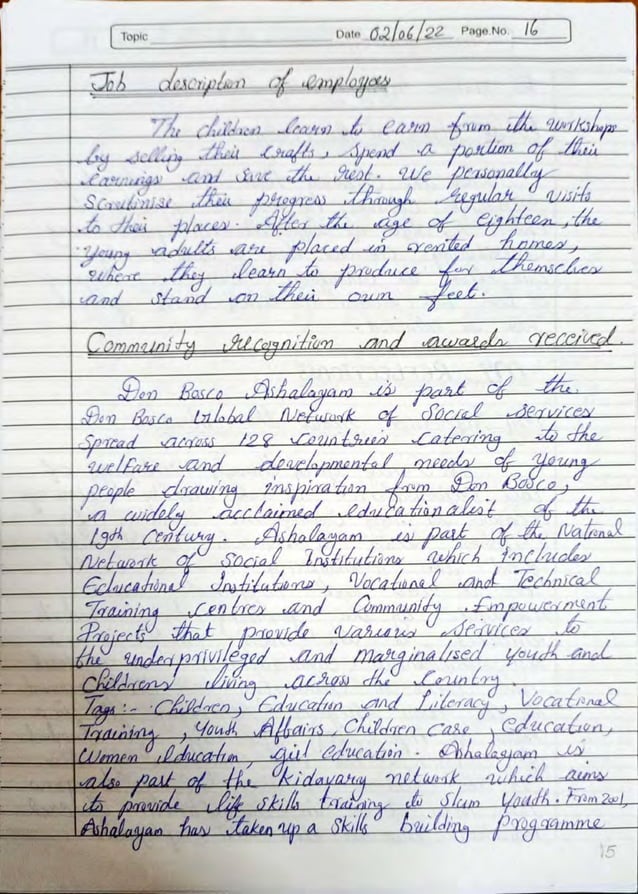 Topic Date 02/06/22 Page.No. 16
Job description of employees
The children learn to earn from the workshops
by selling their crafts, spend a portion of their
earnings and save the rest. We personally
scrutinise their progress through regular visits
to their places. After the age of eighteen, the
young adults are placed in rented homes,
where they learn to produce for themselves
and stand on their own feet.
Community recognition and awards received.
Don Bosco Ashalayam is part of the
Don Bosco Global Network of Social Services
Spread across 128 countries catering to the
welfare and developmental needs of young
people drawing inspiration from Don Bosco,
a widely acclaimed educationalist of the
19th Century. Ashalayam is part of the National
Network of Social Institutions which includes
Educational Institutions, Vocational and Technical
Training centres and Community Empowerment
Projects that provide various services to
the underprivileged and marginalised youth and
Childrens living across the Country.
Tags :- Children, Education and Literacy, Vocational
Training, Youth Affairs, Children Care, education,
Women education, girl education. Ashalayam is
also part of the Kidavary network which aims
to provide life skills training to slum youth. From 2001,
Ashalayam has taken up a Skills building Programme
15